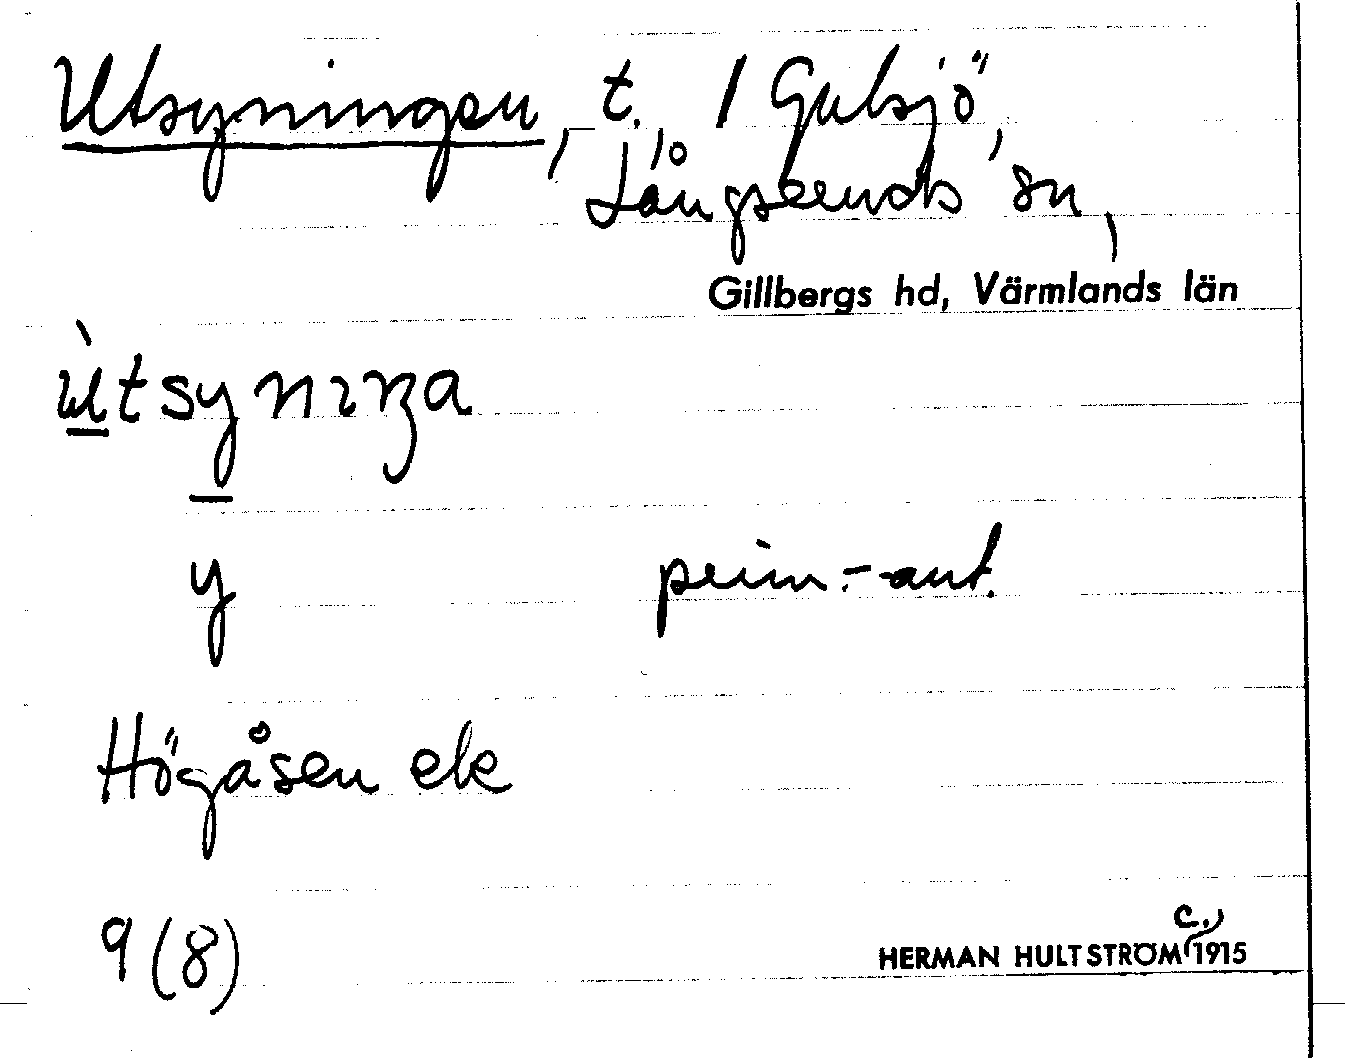 Utsyningen, t. / Gulsjö,
Långseruds sn,
Gillbergs hd, Värmlands län
ùtsynıŋa
y prim.-ant.
Högåsen ek
9 (8)
HERMAN HULTSTRÖM c. 1915